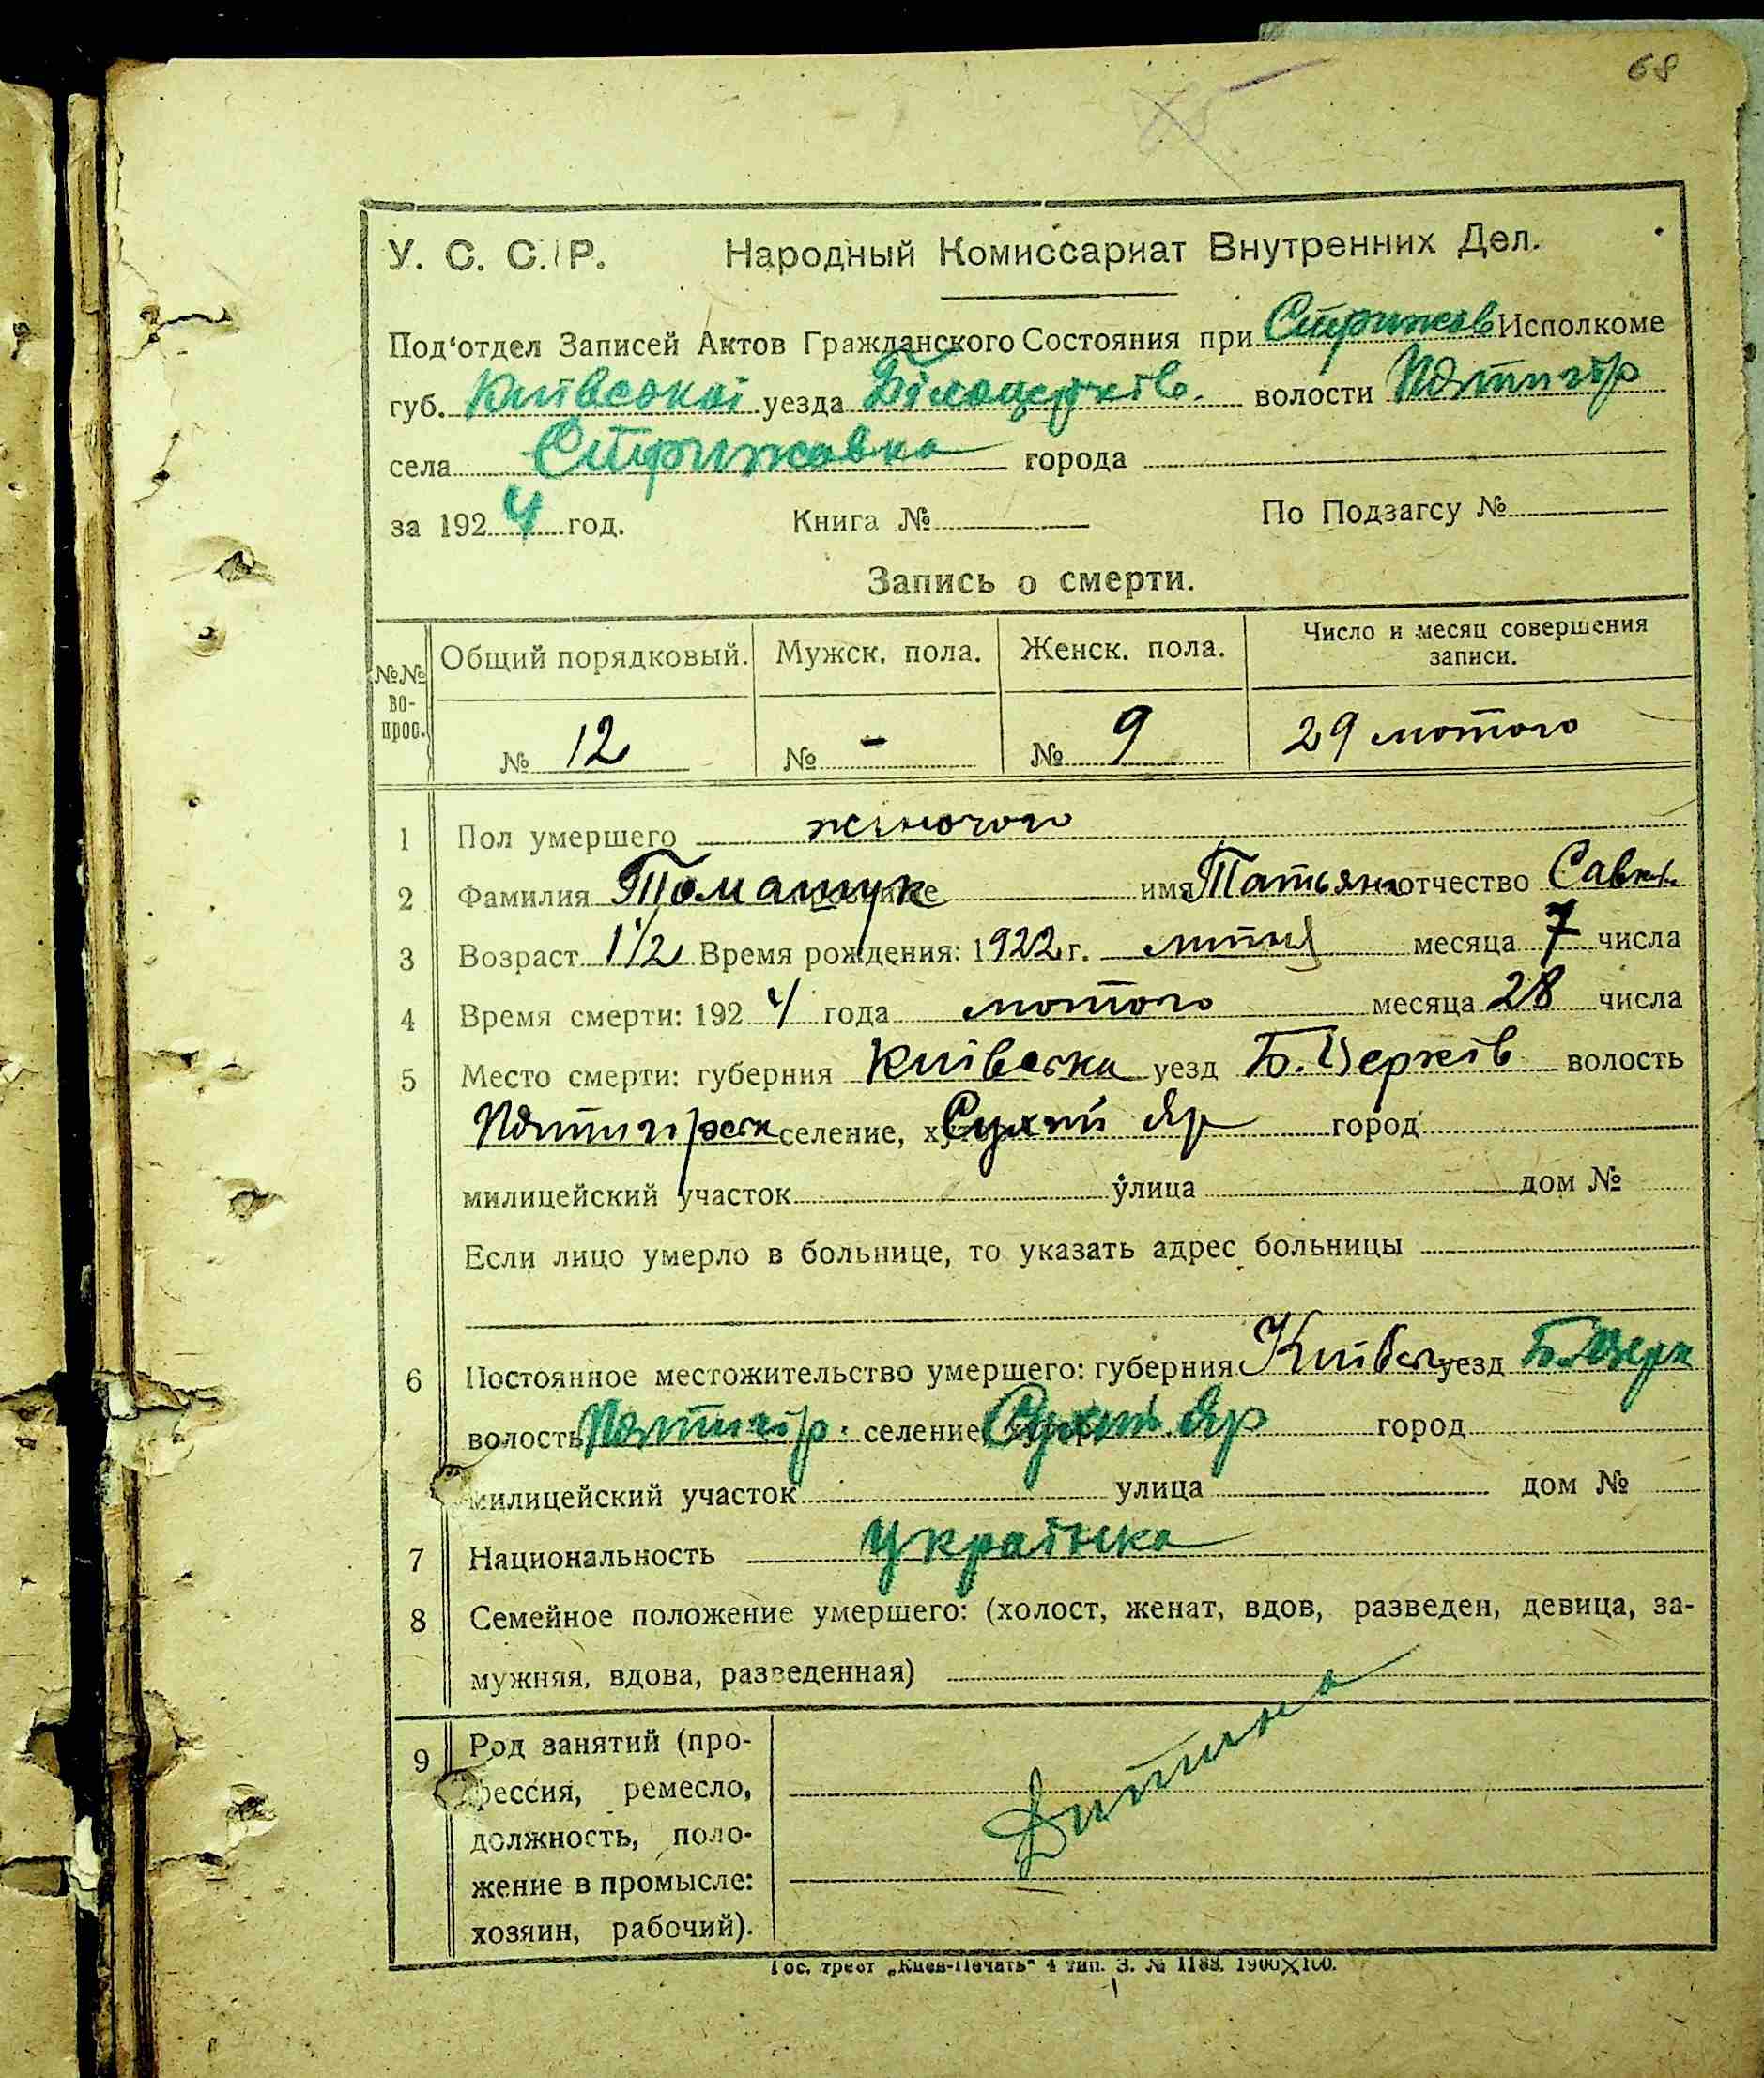 68
У. С. С. Р. Народный Комиссариат Внутренних Дел.
Под'отдел Записей Актов Гражданского Состояния при Стрижов Исполкоме
губ. Київської уезда Білоцерків. волости Пятигор
села Стрижавка города
за 1924 год. Книга № По Подзагсу №
Запись о смерти.
№№ во-прос. Общий порядковый. Мужск. пола. Женск. пола. Число и месяц совершения записи.
№ 12 № - № 9 29 лютого
1 Пол умершего жіночого
2 Фамилия Томашук имя Татьяна отчество Савк.
3 Возраст 1 1/2 Время рождения: 1922 г. липня месяца 7 числа
4 Время смерти: 1924 года лютого месяца 28 числа
5 Место смерти: губерния Київська уезд Б. Церків волость
Пятигорськ селение, Сухий Яр город
милицейский участок улица дом №
Если лицо умерло в больнице, то указать адрес больницы
6 Постоянное местожительство умершего: губерния Київськ уезд Б. Церк
волость Пятигір. селение Сухий Яр город
милицейский участок улица дом №
7 Национальность Українка
8 Семейное положение умершего: (холост, женат, вдов, разведен, девица, за-
мужняя, вдова, разведенная)
9 Род занятий (про-
фессия, ремесло,
должность, поло-
жение в промысле:
хозяин, рабочий).
Дитина
Гос. трест „Киев-Печать" 4 тип. З. № 1188. 1900×100.